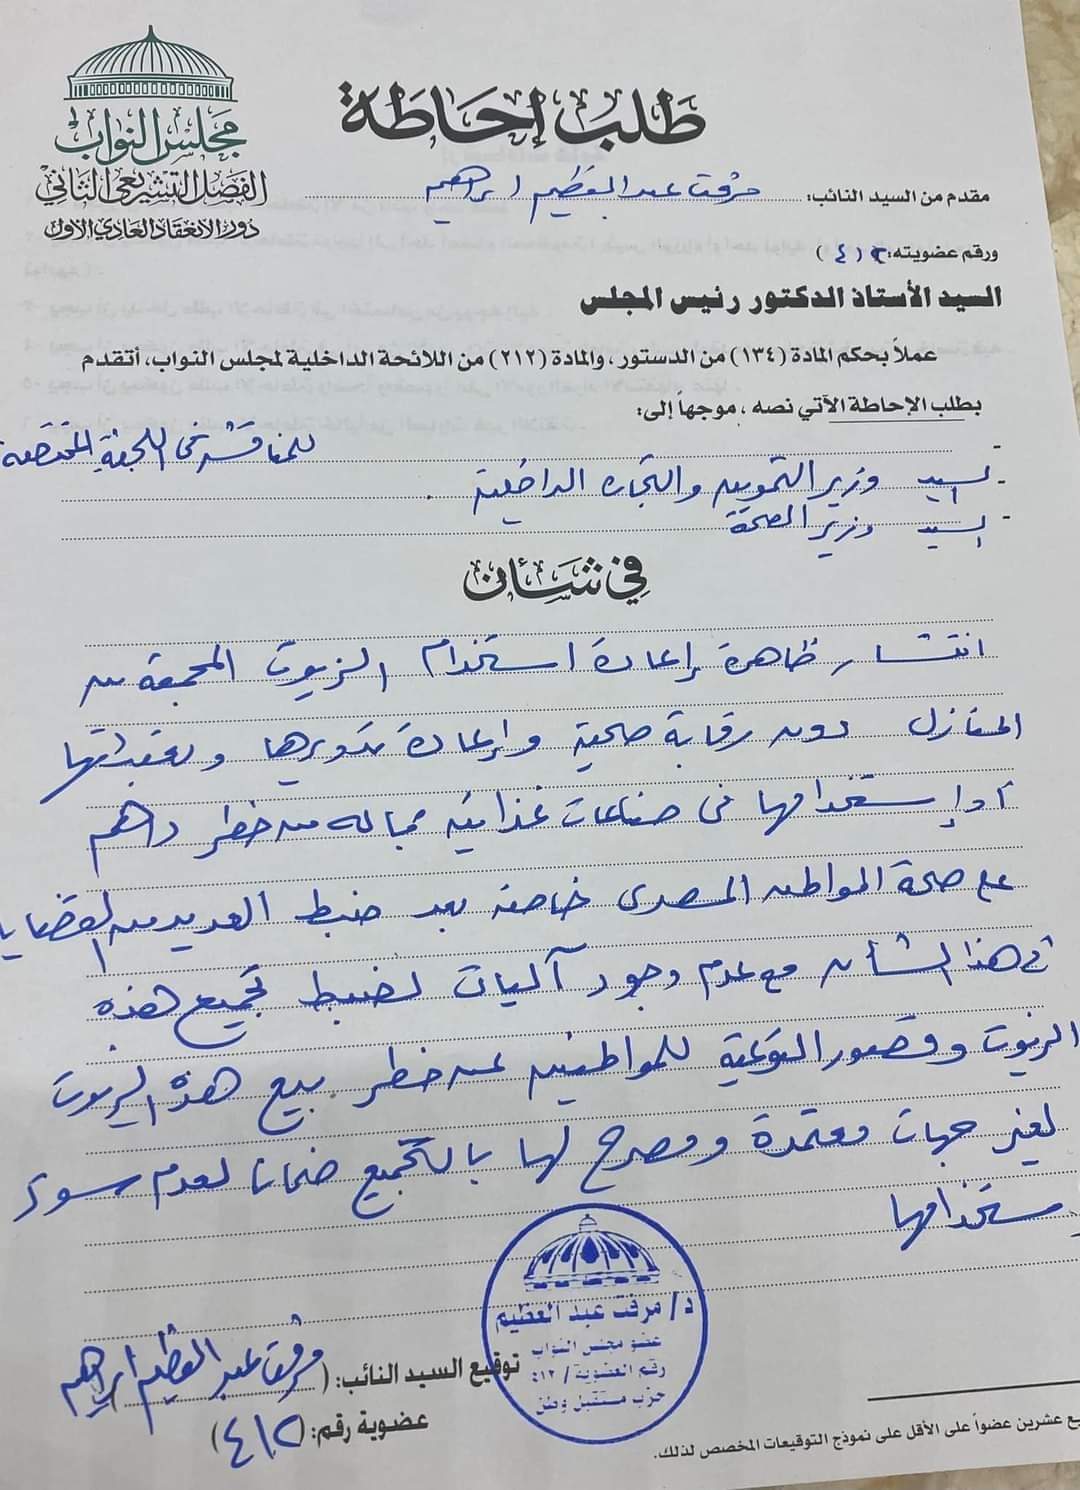 مجلس النواب
الفصل التشريعى الثانى
دور الانعقاد العادي الأول
طلب إحاطة
مقدم من السيد النائب: مرفت عبد العظيم ابراهيم
ورقم عضويته: (٤١٢)
السيد الأستاذ الدكتور رئيس المجلس
عملاً بحكم المادة (١٣٤) من الدستور، والمادة (٢١٢) من اللائحة الداخلية لمجلس النواب، أتقدم
بطلب الإحاطة الآتي نصه، موجهاً إلى:
للمناقشة فى اللجنة المختصة
- السيد وزير التموين والتجارة الداخلية.
- السيد وزير الصحة
في شأن
انتشار ظاهرة إعادة استخدام الزيوت المجمعة من
المنازل دون رقابة صحية وإعادة تدويرها وتعبئتها
أو إستخدامها فى صناعات غذائية مما له من خطر داهم
على صحة المواطن المصرى خاصة بعد ضبط العديد من القضايا
فى هذا الشأن مع عدم وجود آليات لضبط تجميع هذه
الزيوت وقصور التوعية للمواطنين عن خطر بيع هذه الزيوت
لغير جهات معتمدة ومصرح لها بالتجميع ضمانا لعدم سوء
إستخدامها
د/ مرفت عبد العظيم
عضو مجلس النواب
رقم العضوية / ٤١٢
حزب مستقبل وطن
توقيع السيد النائب: (مرفت عبد العظيم ابراهيم)
عضوية رقم: (٤١٢)
ع عشرين عضواً على الأقل على نموذج التوقيعات المخصص لذلك.